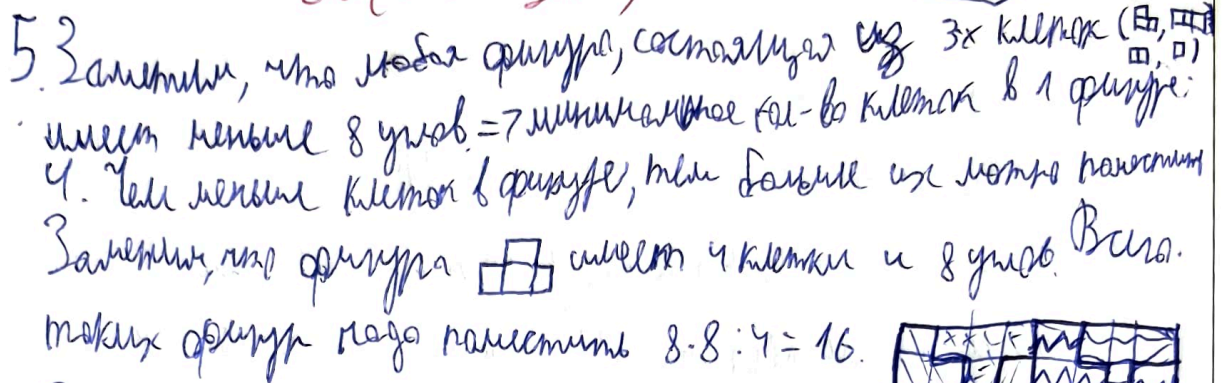 5. Заметим, что любая фигура, состоящая из 3х клеток ( , , , )
имеет меньше 8 углов. => минимальное кол-во клеток в 1 фигуре:
4. Чем меньше клеток в фигуре, тем больше их можно поместить
Заметим, что фигура имеет 4 клетки и 8 углов. Всего
таких фигур надо поместить 8·8:4=16.